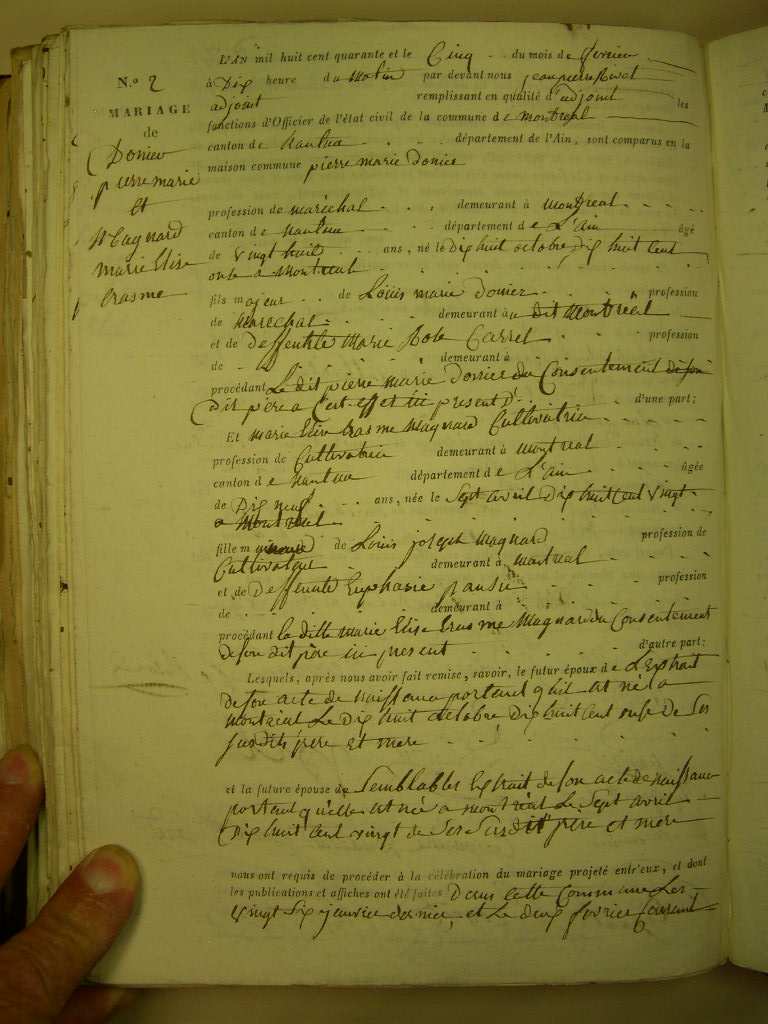 N.º 2
MARIAGE
de
Donier
pierre marie
et
Magnard
marie Elise
Erasme
L'AN mil huit cent quarante et le Cinq du mois de fevrier
à Dix heure du Matin par devant nous jean pierre
adjoint remplissant en qualité d'adjoint les
fonctions d'Officier de l'état civil de la commune de montreal
canton de Nantua département de l'Ain, sont comparus en la
maison commune pierre marie Donier
profession de maréchal demeurant à Montreal
canton de Nantua département de L'ain âgé
de Vingt huit ans, né le Dix huit octobre Dix huit Cent
onze a Montreal
fils majeur de Louis marie Donier profession
de Marechal demeurant à u dit Montréal
et de Deffunte Marie Carrel profession
de demeurant à
procédant Le dit pierre Marie Donier du Consentement de son
Dit père a Cet effet ici present d'une part;
Et Marie Elise Erasme Magnard Cultivatrice
profession de Cultivatrice demeurant à montreal
canton de Nantua département de L'ain âgée
de Dix neuf ans, née le Sept avril Dix huit Cent Vingt
a Montreal
fille mineure de Louis joseph Magnard profession de
Cultivateur demeurant à montreal
et de Deffunte Euphrasie profession
de demeurant à
procédant la ditte Marie Elise Erasme Magnard du Consentement
de son dit père ici present d'autre part;
Lesquels, après nous avoir fait remise, savoir, le futur époux de L'Extrait
de son acte de Naissance portant qu'il est né a
Montréal Le Dix huit octobre Dix huit Cent onze De Ses
susdits père et mere
et la future épouse de Semblables Extrait de son acte de Naissance
portant qu'elle est née a montréal Le Sept avril
Dix huit Cent vingt de Ses Susdit père et mere
nous ont requis de procéder à la célébration du mariage projeté entr'eux, et dont
les publications et affiches ont été faites Dans cette Commune Les
Vingt Six janvier dernier, et Le deux fevrier Courant